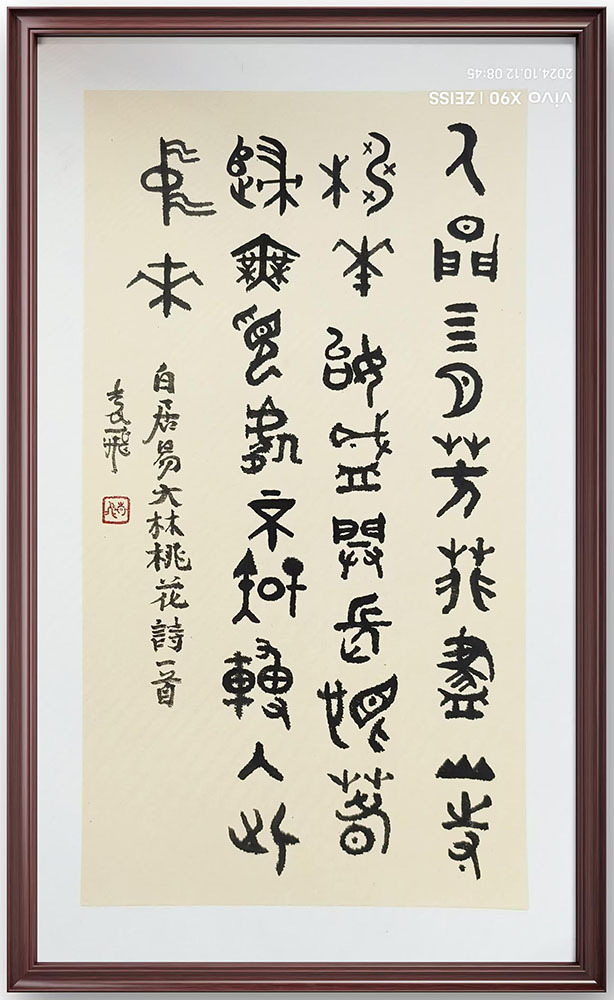 人間四月芳菲盡山寺
桃華始盛開長恨春
歸無覓處不知轉入此
中來
白居易大林桃花詩一首
vivo X90 | ZEISS
2024.10.12 08:45